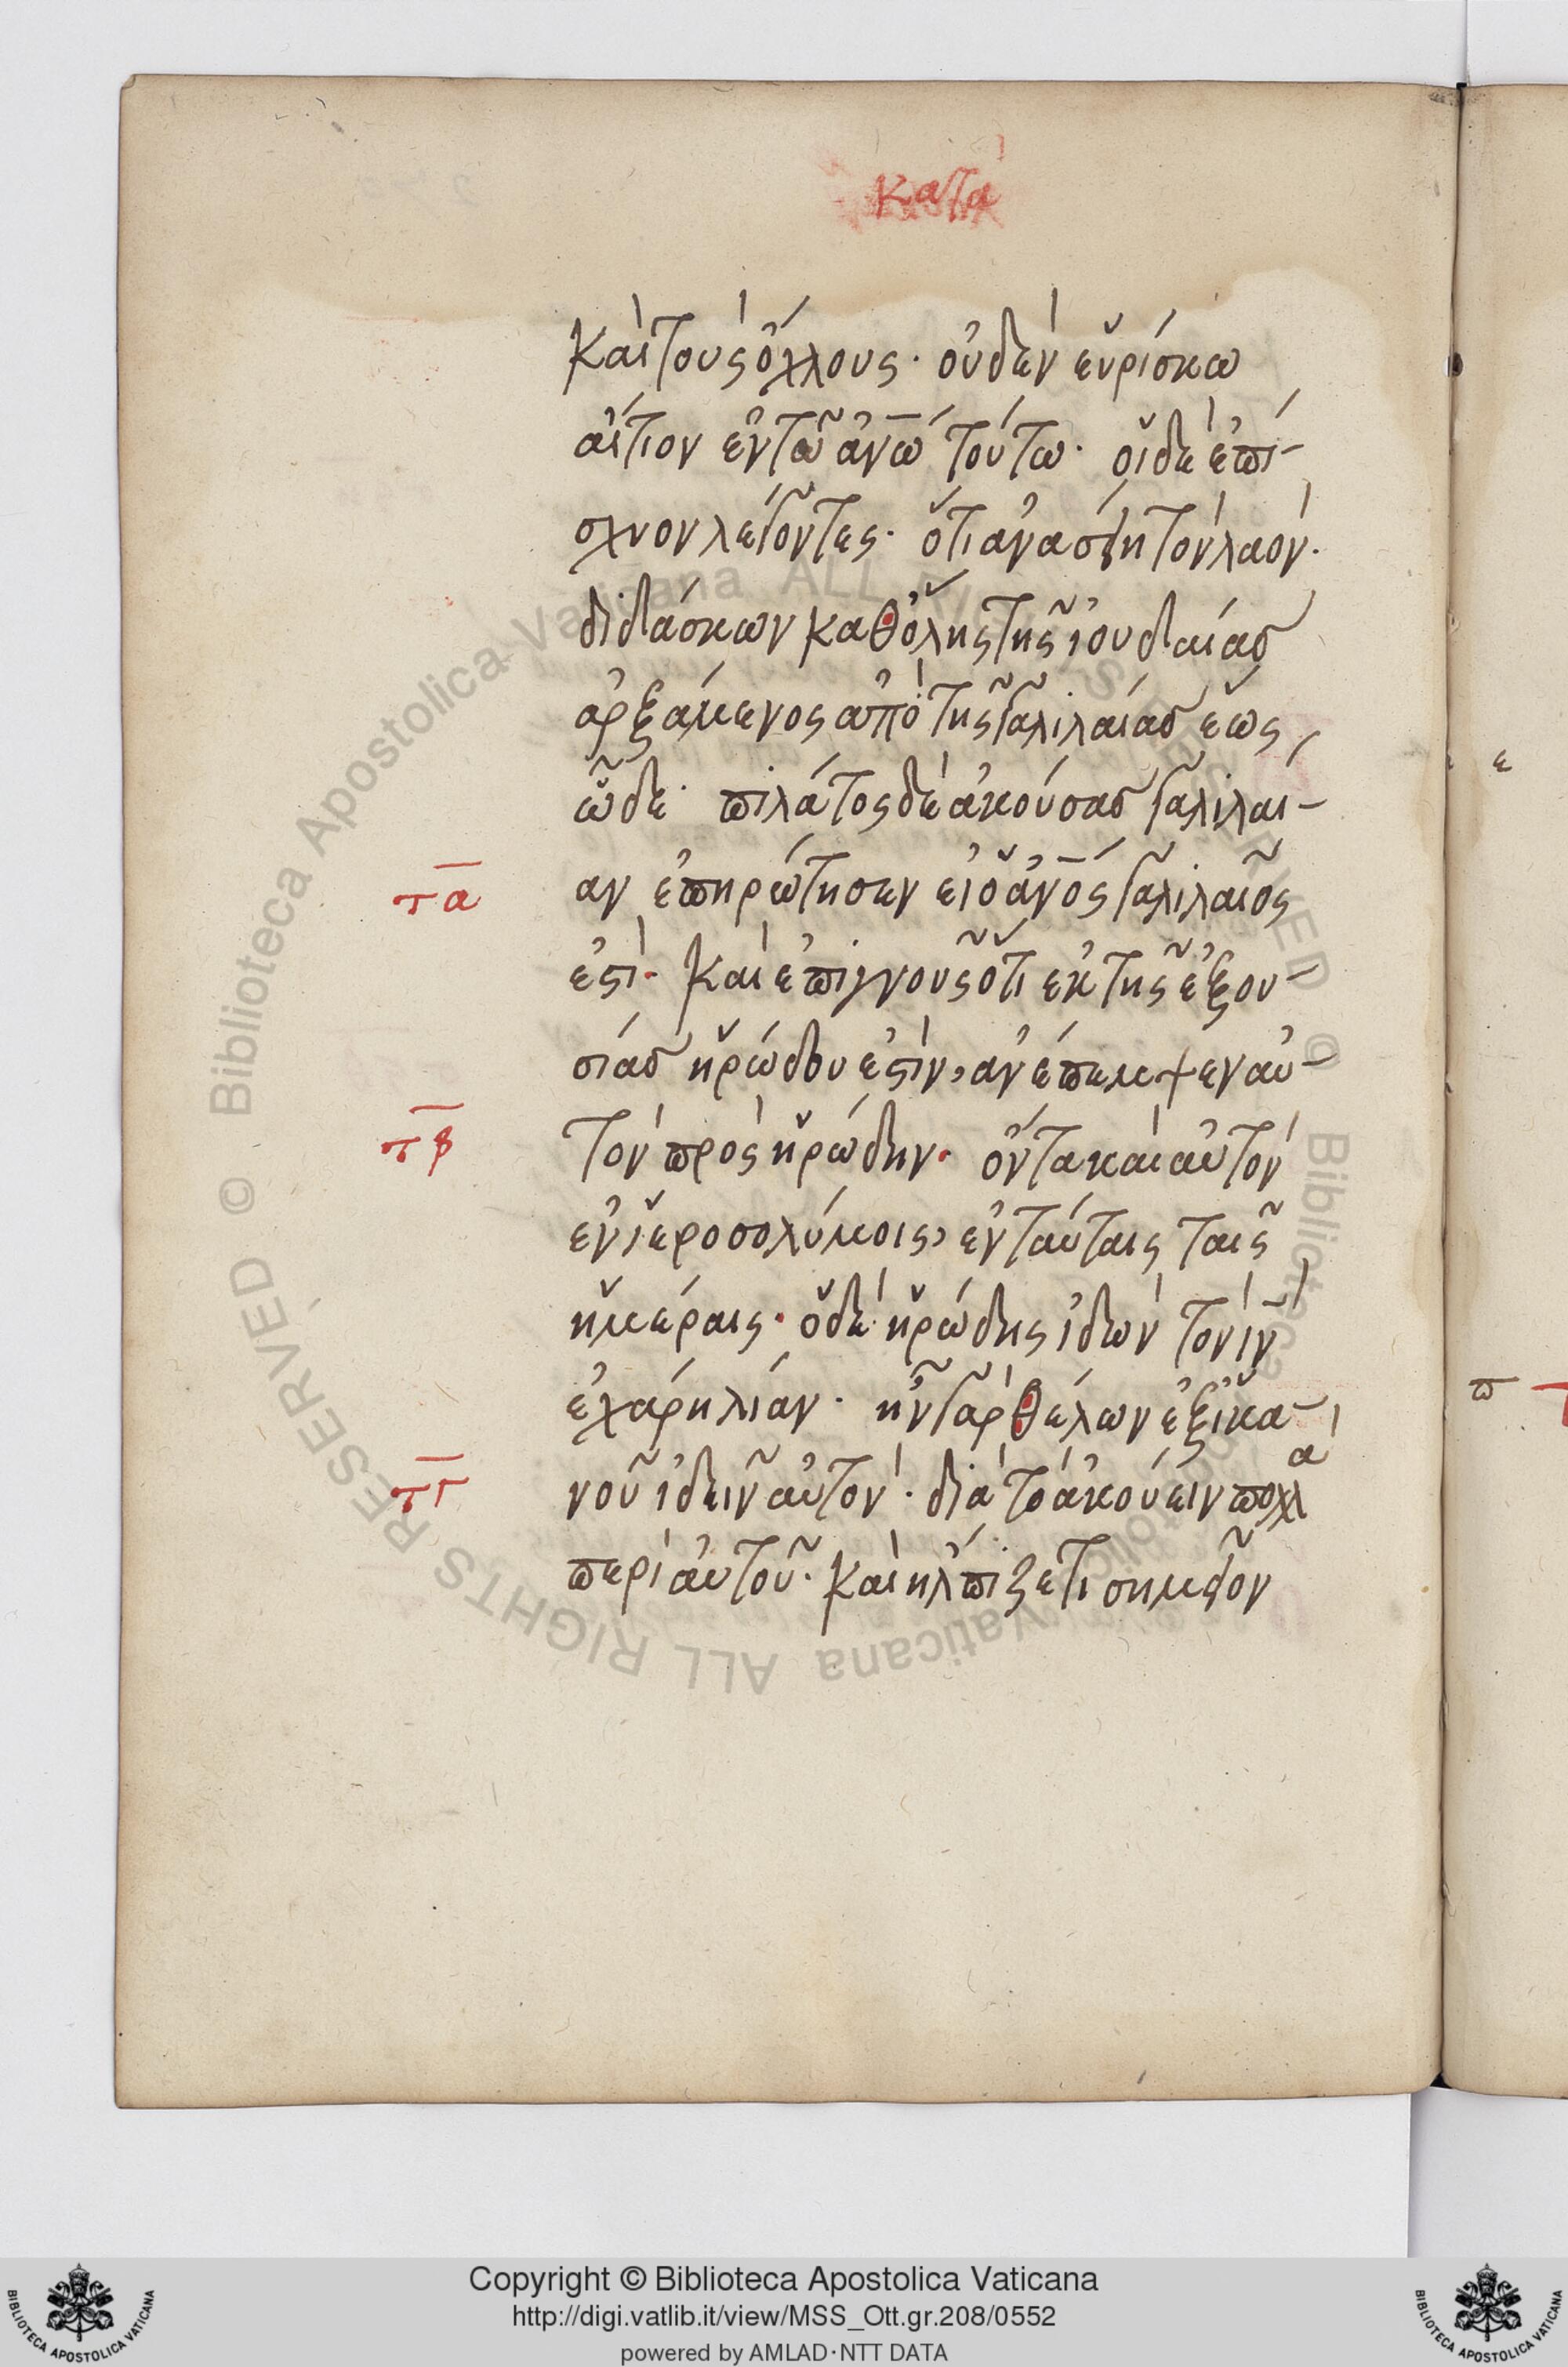 κατα
καὶ τοὺς ὄχλους· οὐδὲν εὑρίσκω
αἴτιον ἐν τῶ ἀνω τούτω· οἱ δὲ ἐπί-
σχυον λέγοντες· ὅτι ἀνασείη τὸν λαὸν·
διδάσκων καθ ὅλης τῆς ἰουδαίας
ἀρξάμενος ἀπὸ τῆς γαλιλαίας ἕως
ὧδε· πιλάτος δὲ ἀκούσας γαλιλαί-
τα αν ἐπηρώτησεν εἰ ὁ ἀνος γαλιλαῖος
ἐστὶ· καὶ ἐπιγνοὺς ὅτι ἐκ τῆς ἐξου-
σίας ἡρώδου ἐστὶν, ἀνέπεμψεν αὐ-
τβ τὸν πρὸς ἡρώδην· ὄντα καὶ αὐτὸν
ἐν ἱεροσολύμοις, ἐν ταύταις ταῖς
ἡμέραις· ὁ δὲ ἡρώδης ἰδὼν τὸν ιν
ἐχάρη λίαν· ἦν γὰρ θέλων ἐξ ἱκα-
τγ νοῦ ἰδεῖν αὐτὸν· διὰ τὸ ἀκούειν πολλὰ
περὶ αὐτοῦ· καὶ ἤλπιζε τι σημεῖον
Copyright © Biblioteca Apostolica Vaticana
http://digi.vatlib.it/view/MSS_Ott.gr.208/0552
powered by AMLAD·NTT DATA